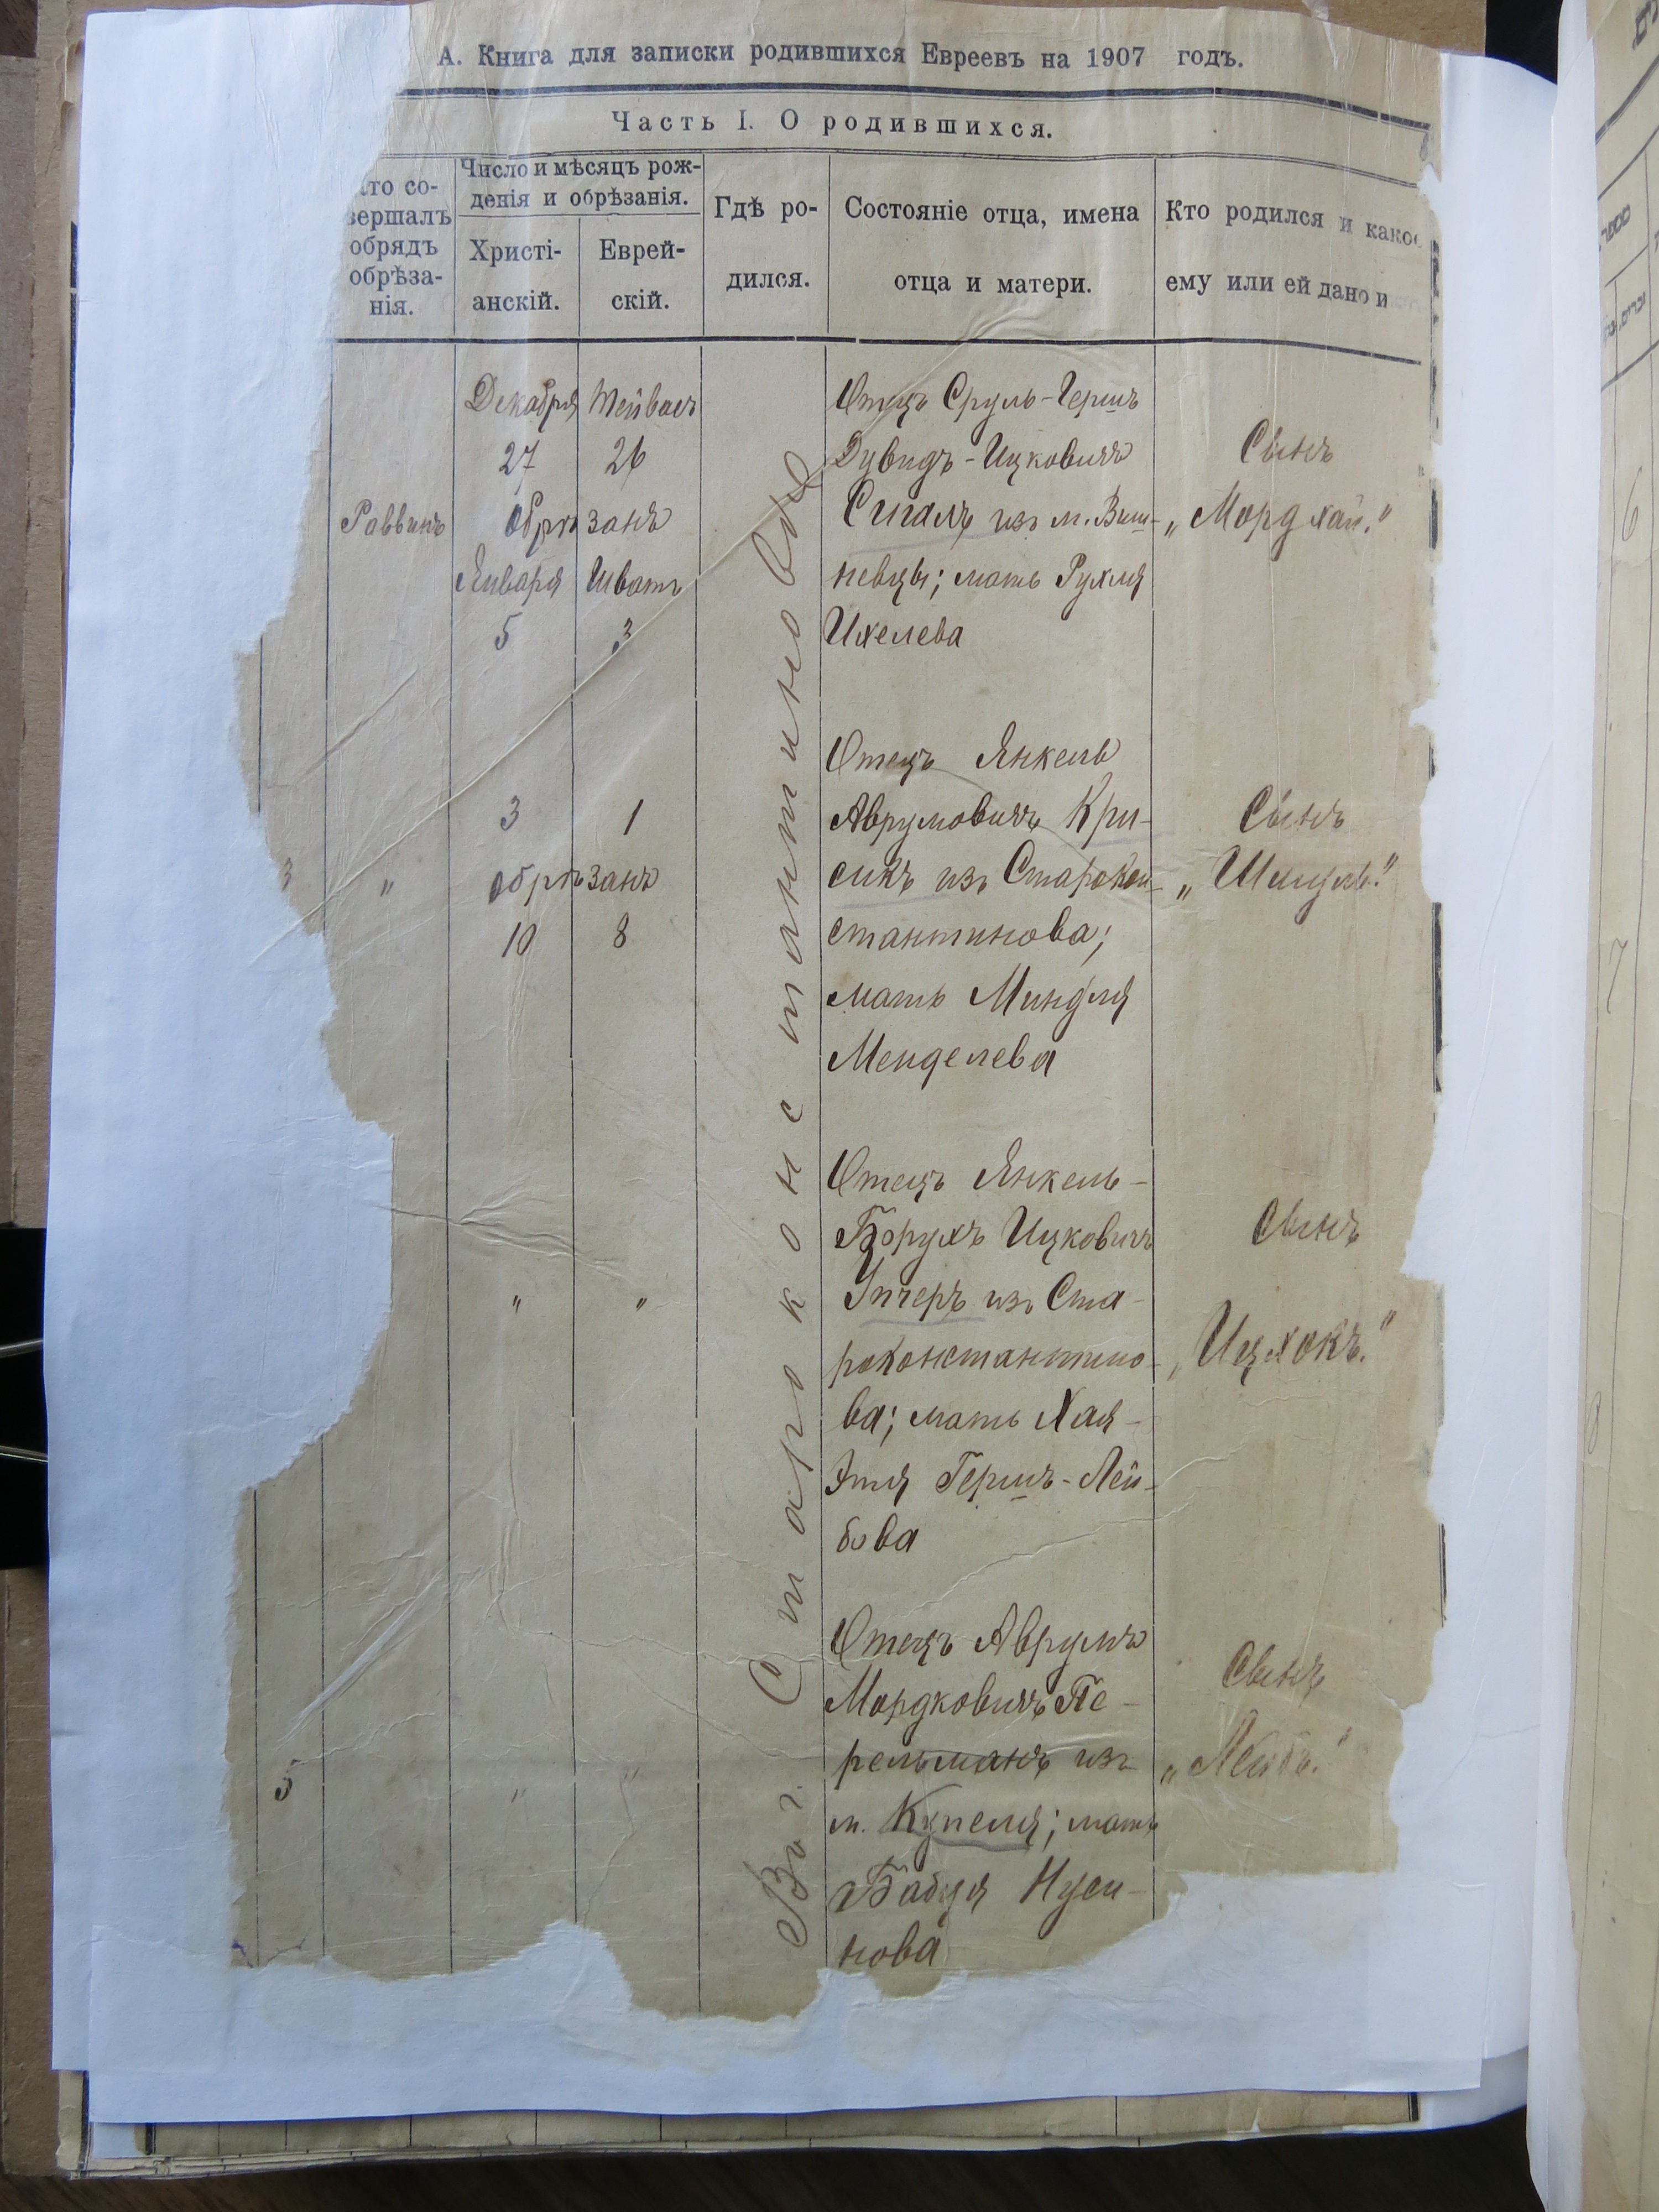 А. Книга для записки родившихся Евреевъ на 1907 годъ.
Часть I. О родившихся.
кто со-
вершалъ
обрядъ
обрѣза-
нія.
Число и мѣсяцъ рож-
денія и обрѣзанія.
Христі-
анскій.
Еврей-
скій.
Гдѣ ро-
дился.
Состояніе отца, имена
отца и матери.
Кто родился и какое
ему или ей дано и
Раввинъ
Декабря Тейвасъ
27 26
Обрѣзанъ
Января Шватъ
5 3
Въ г. Староконстантиновѣ
Отецъ Сруль-Гершъ
Дувидъ-Ицковичъ
Сигалъ изъ м. Виш-
невцы; мать Рухля
Ихелева
Сынъ
„Мордхай."
3
"
3 1
обрѣзанъ
10 8
Отецъ Янкель
Аврумовичъ Кри-
сикъ изъ Старокон-
стантинова;
мать Миндля
Менделева
Сынъ
„Шмуль."
" "
Отецъ Янкель-
Борухъ Ицковичъ
Упчеръ изъ Ста-
роконстантино-
ва; мать Хая-
Этя Гершъ-Лей-
бова
Сынъ
„Ицхокъ."
5
" "
Отецъ Аврумъ
Мордковичъ Пе-
рельманъ изъ
м. Купеля; мать
Бабця Нуси-
нова
Сынъ
„Лейбъ."
6
7